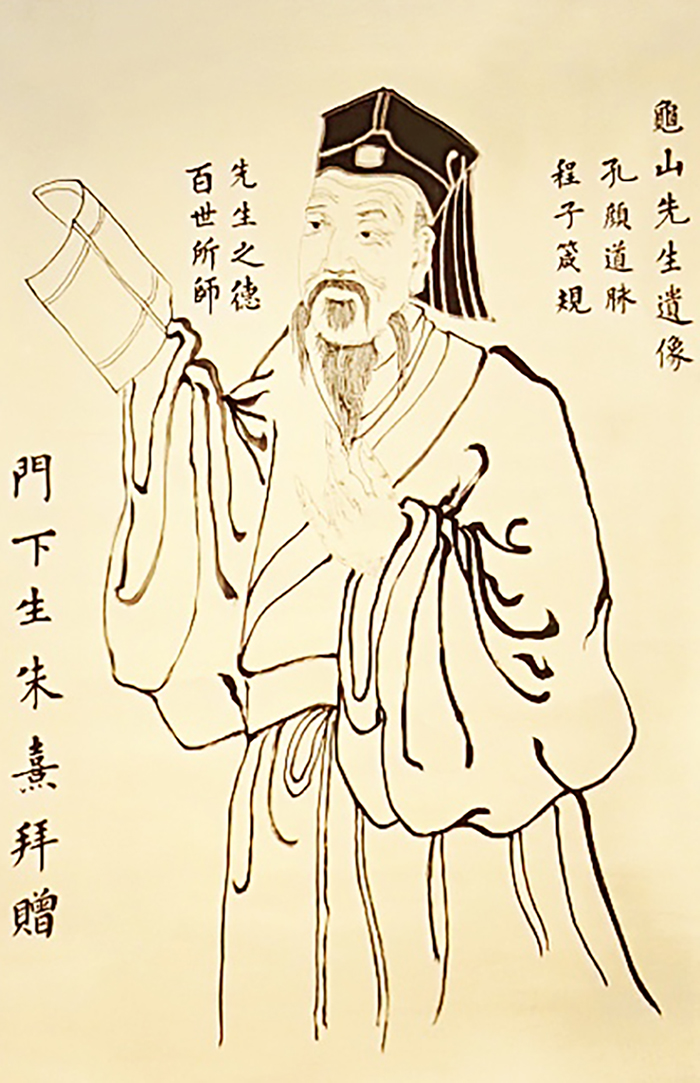 龜山先生遺像
孔顏道脉
程子箴規
先生之德
百世所師
門下生朱熹拜贈